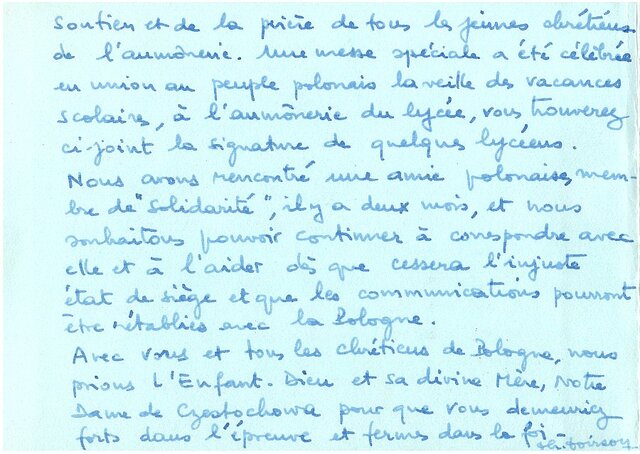 Soutien et de la prière de tous les jeunes chrétiens
de l'aumônerie. Une messe spéciale a été célébrée
en union au peuple polonais la veille des vacances
scolaires, à l'aumônerie du lycée, vous trouverez
ci-joint la signature de quelques lycéens.
Nous avons rencontré une amie polonaise, mem-
bre de "Solidarité", il y a deux mois, et nous
souhaitons pouvoir continuer à correspondre avec
elle et à l'aider dès que cessera l'injuste
état de siège et que les communications pourront
être rétablies avec la Pologne.
Avec vous et tous les chrétiens de Pologne, nous
prions l'Enfant-Dieu et sa divine Mère, Notre
Dame de Czestochowa pour que vous demeuriez
forts dans l'épreuve et fermes dans la foi